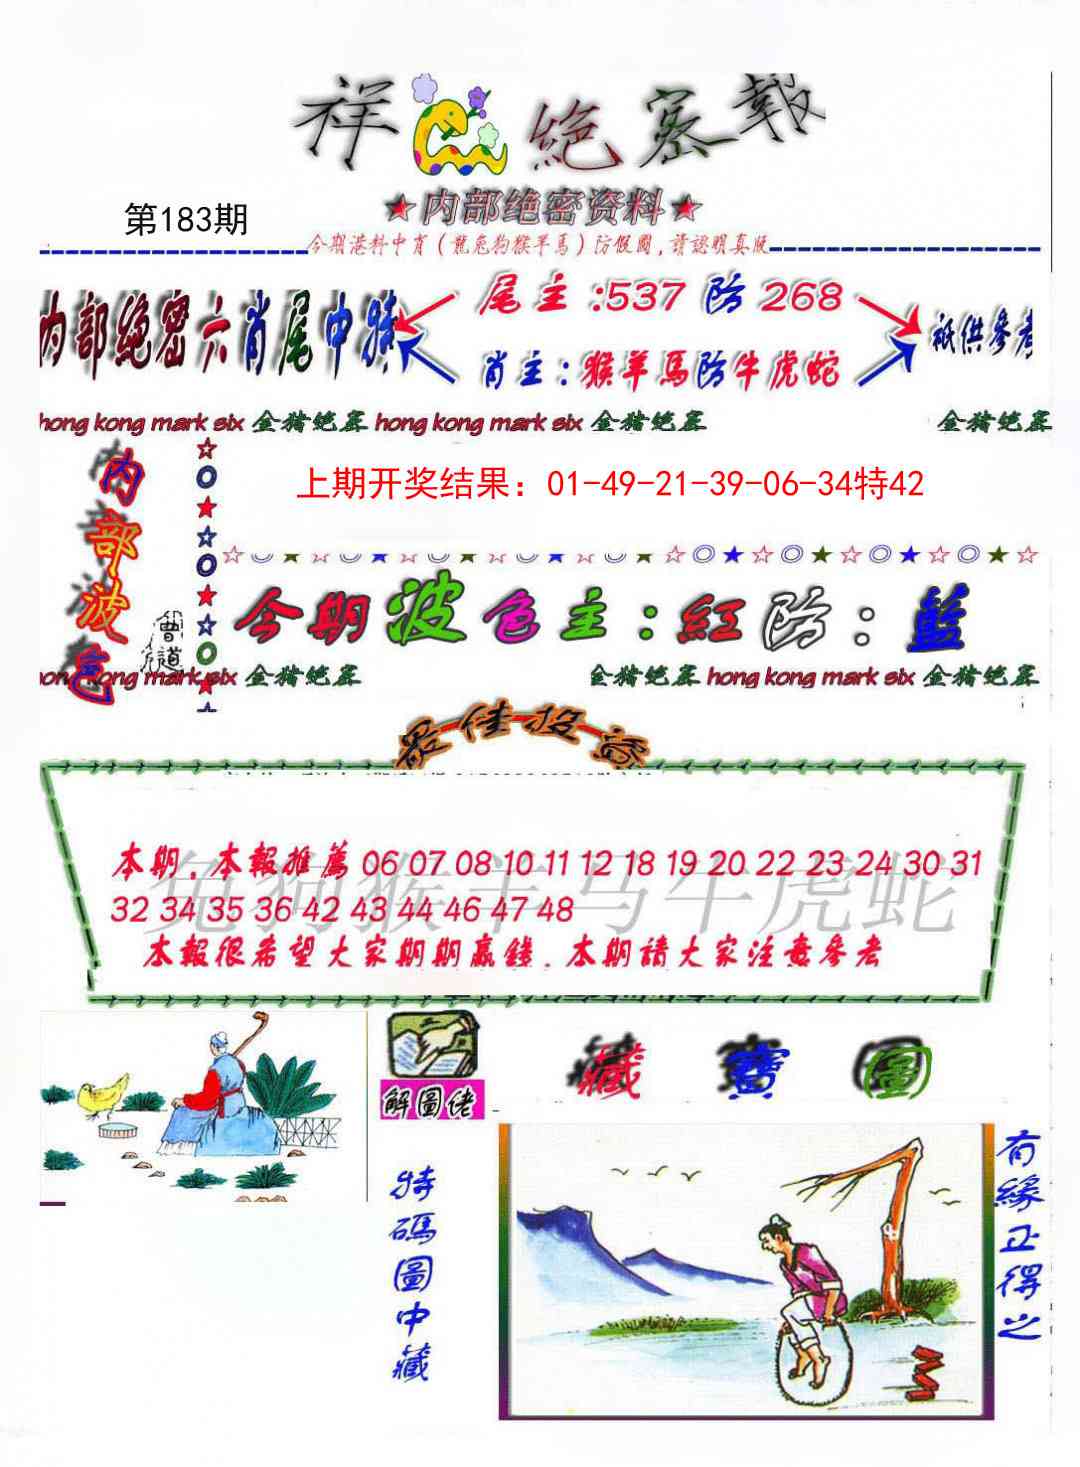 祥 絕密報
★内部绝密资料★
第183期
今期港料中肖（龍兔狗猴羊馬）防假圖,請認明真版
内部绝密六肖尾中特
尾主:537防268
肖主:猴羊馬防牛虎蛇
祗供參考
hong kong mark six 金猪绝密 hong kong mark six 金猪绝密
金猪绝密
内部波色
曾道
上期开奖结果：01-49-21-39-06-34特42
今期波色主:紅防:藍
hong kong mark six 金猪绝密
金猪绝密 hong kong mark six 金猪绝密
最佳投
兔狗猴羊马牛虎蛇
本期.本報推薦06 07 08 10 11 12 18 19 20 22 23 24 30 31
32 34 35 36 42 43 44 46 47 48
本報很希望大家期期贏錢.本期請大家注意參考
解圖佬
藏寶圖
特碼圖中藏
有緣正得之